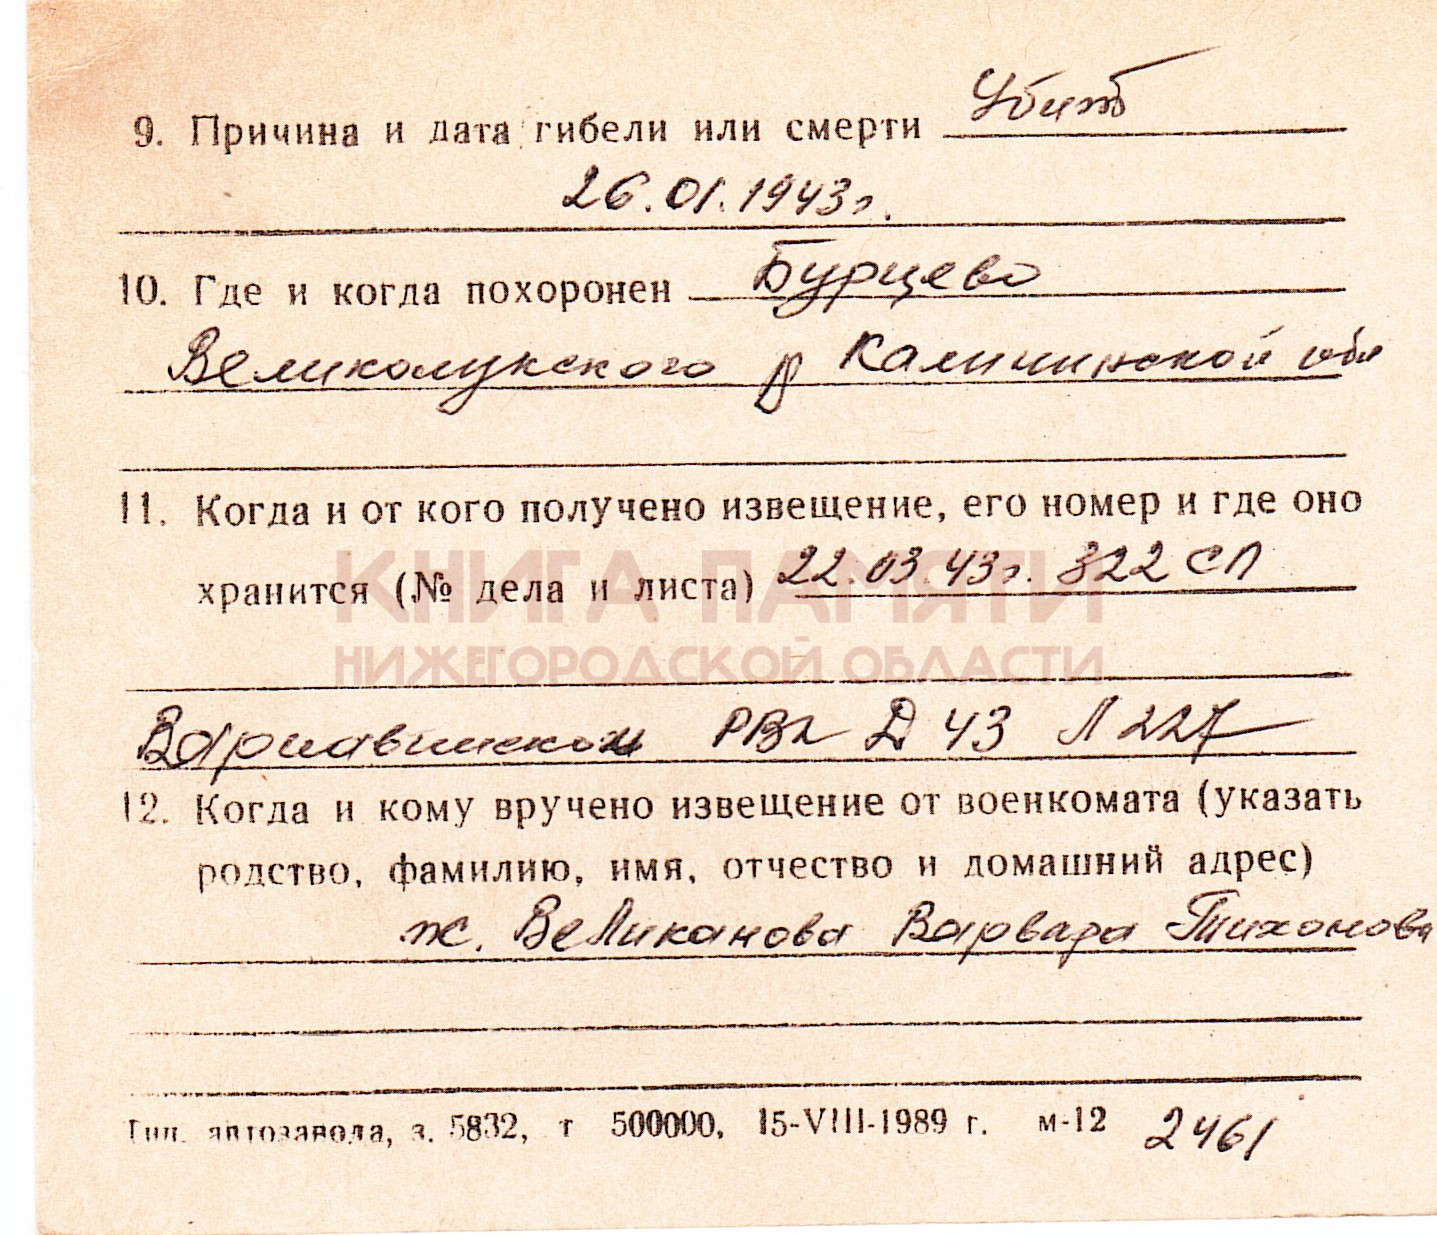 9. Причина и дата гибели или смерти Убит
26.01.1943г.
10. Где и когда похоронен Бурцево
Великолукского р Калининской обл
11. Когда и от кого получено извещение, его номер и где оно
хранится (№ дела и листа) 22.03.43г. 322 СП
КНИГА ПАМЯТИ
НИЖЕГОРОДСКОЙ ОБЛАСТИ
Варнавинском РВк Д 43 Л 227
12. Когда и кому вручено извещение от военкомата (указать
родство, фамилию, имя, отчество и домашний адрес)
ж. Великанова Варвара Тихонова
Тип. автозавода, з. 5832, т 500000, 15-VIII-1989 г. м-12 2461